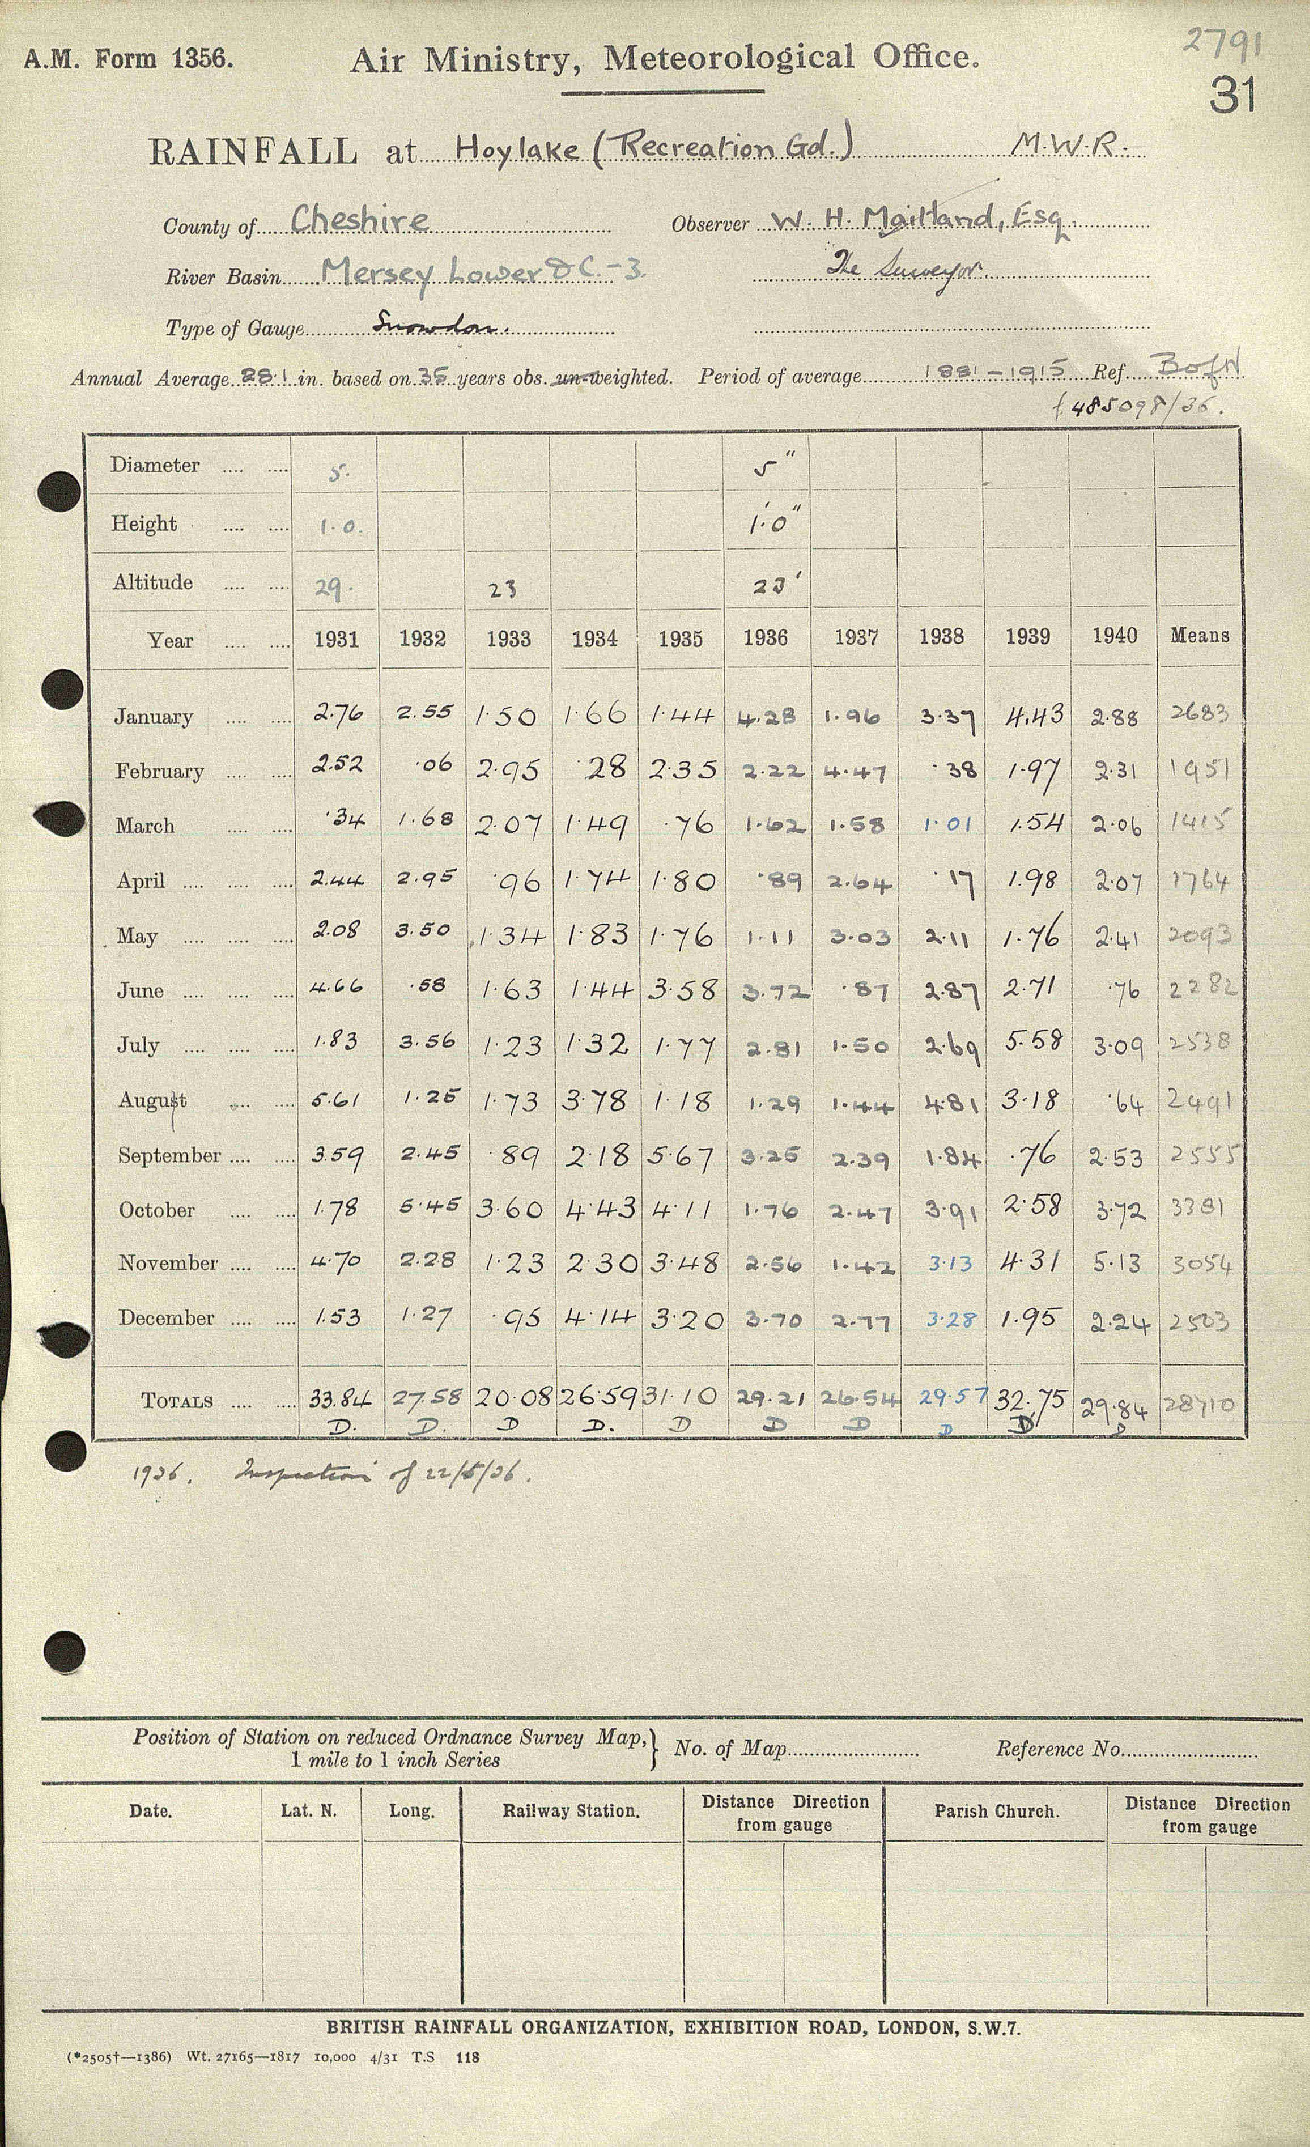 2791
A.M. Form 1356. Air Ministry, Meteorological Office.
31
RAINFALL at Hoylake (Recreation Gd.) M.W.R.
County of Cheshire Observer W. H. Maitland, Esq.
River Basin Mersey Lower &C. -3. The Surveyor
Type of Gauge Snowdon.
Annual Average 28.1 in. based on 35 years obs. un-weighted. Period of average 1881-1915 Ref. BofW
485098/36.
Diameter 5. 5"
Height 1.0. 1'.0"
Altitude 29. 23 23'
Year 1931 1932 1933 1934 1935 1936 1937 1938 1939 1940 Means
January 2.76 2.55 1.50 1.66 1.44 4.28 1.96 3.37 4.43 2.88 2683
February 2.52 .06 2.95 .28 2.35 2.22 4.47 .38 1.97 2.31 1951
March .34 1.68 2.07 1.49 .76 1.62 1.58 1.01 1.54 2.06 1415
April 2.44 2.95 .96 1.74 1.80 .89 2.64 .17 1.98 2.07 1764
May 2.08 3.50 1.34 1.83 1.76 1.11 3.03 2.11 1.76 2.41 2093
June 4.66 .58 1.63 1.44 3.58 3.72 .87 2.87 2.71 .76 2282
July 1.83 3.56 1.23 1.32 1.77 2.81 1.50 2.69 5.58 3.09 2538
August 5.61 1.25 1.73 3.78 1.18 1.29 1.44 4.81 3.18 .64 2491
September 3.59 2.45 .89 2.18 5.67 3.25 2.39 1.84 .76 2.53 2555
October 1.78 5.45 3.60 4.43 4.11 1.76 2.47 3.91 2.58 3.72 3381
November 4.70 2.28 1.23 2.30 3.48 2.56 1.42 3.13 4.31 5.13 3054
December 1.53 1.27 .95 4.14 3.20 3.70 2.77 3.28 1.95 2.24 2503
TOTALS 33.84 27.58 20.08 26.59 31.10 29.21 26.54 29.57 32.75 29.84 28710
D. D. D D. D D D D D D
1936. Inspection of 22/5/36.
Position of Station on reduced Ordnance Survey Map, 1 mile to 1 inch Series } No. of Map Reference No.
Date. Lat. N. Long. Railway Station. Distance Direction from gauge Parish Church. Distance Direction from gauge
BRITISH RAINFALL ORGANIZATION, EXHIBITION ROAD, LONDON, S.W.7.
(*2505†—1386) Wt. 27165—1817 10,000 4/31 T.S 118